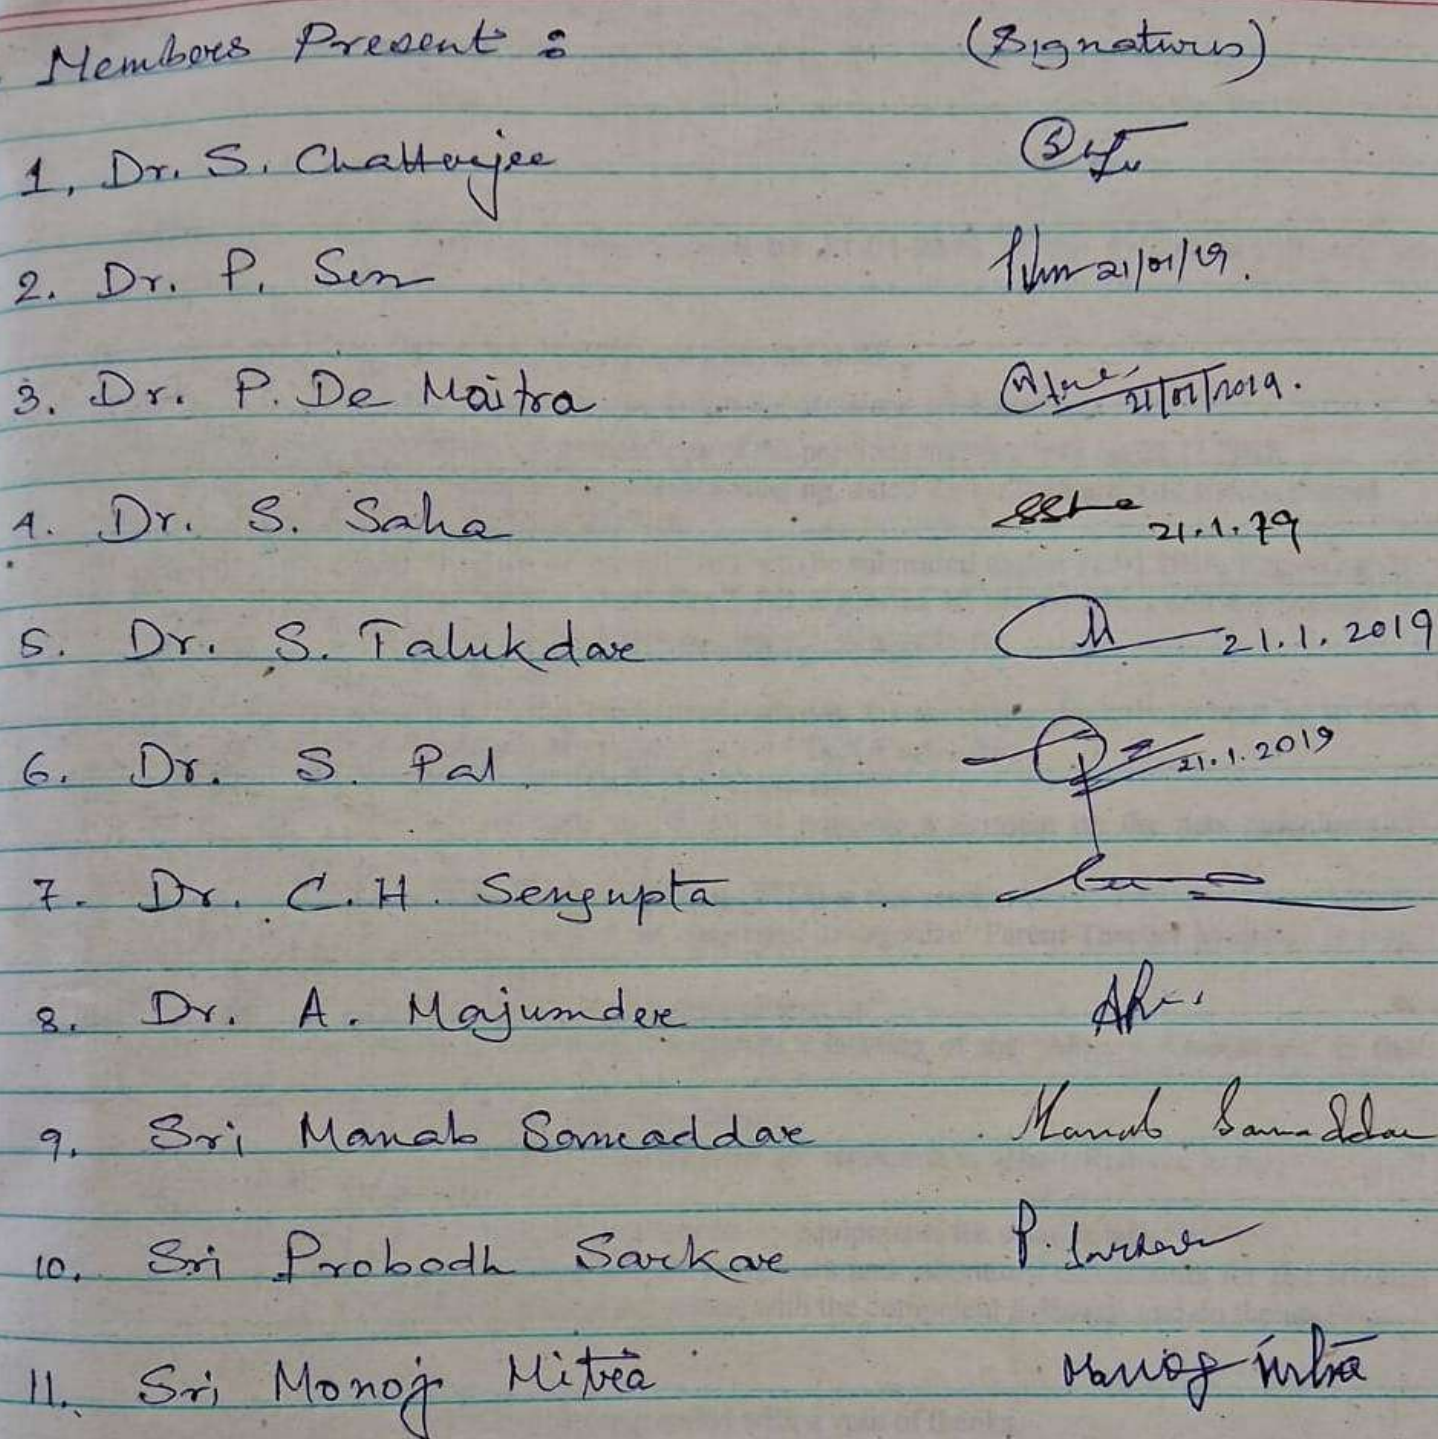 Members Present : (Signatures)
1. Dr. S. Chatterjee
2. Dr. P. Sen 21/01/19.
3. Dr. P. De Maitra 21/01/2019.
4. Dr. S. Saha SSaha 21.1.19
5. Dr. S. Talukdar 21.1.2019
6. Dr. S. Pal 21.1.2019
7. Dr. C.H. Sengupta
8. Dr. A. Majumder
9. Sri Manab Samaddar Manab Samaddar
10. Sri Probodh Sarkar P. Sarkar
11. Sri Monoj Mitra Monoj Mitra